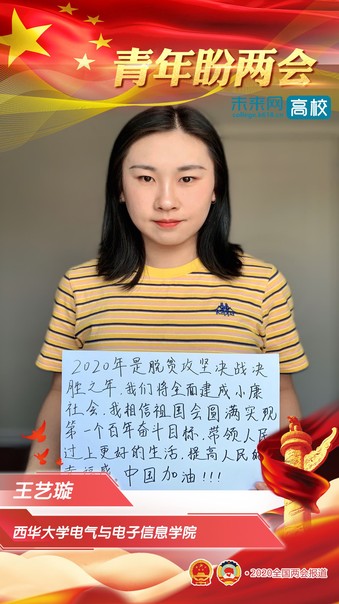 青年盼两会
未来网
高校
2020年是脱贫攻坚决战决
胜之年,我们将全面建成小康
社会,我相信祖国会圆满实现
第一个百年奋斗目标,带领人民
过上更好的生活,提高人民的
幸福感,中国加油!!!
王艺璇
西华大学电气与电子信息学院
·2020全国两会报道